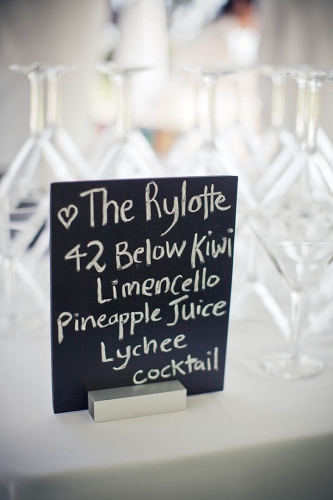 ♡ The Rylotte
42 Below Kiwi
Limencello
Pineapple Juice
Lychee
cocktail